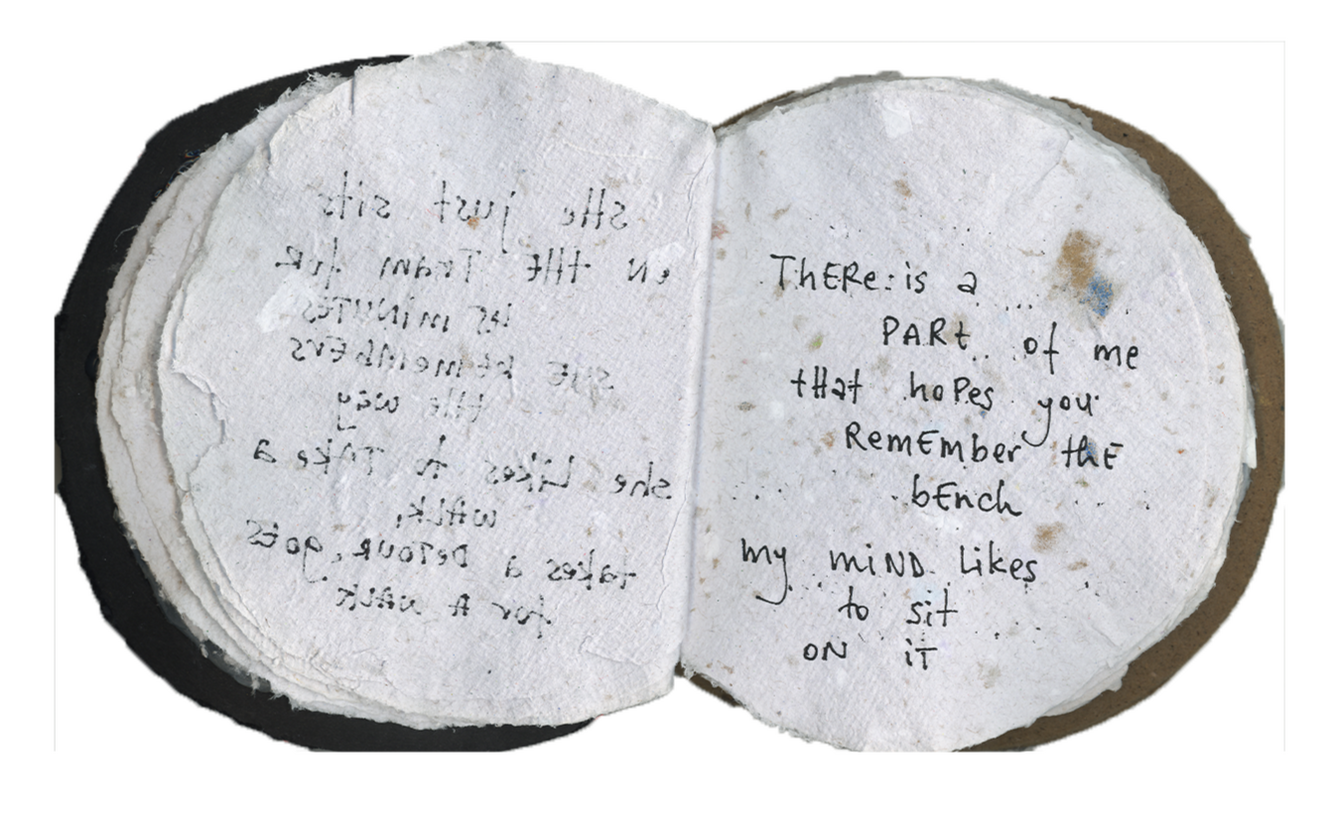 sHe just sits
oN tHE Tram foR
45 miNUTES
SHE REmEMbERS
tHe way
she Likes to TAKE a
WALK,
takes a DETOUR, goES
for A WALK
ThERe is a
PARt of me
tHat hoPes you
RemEmber thE
bEnch
my miND Likes
to sit
ON iT